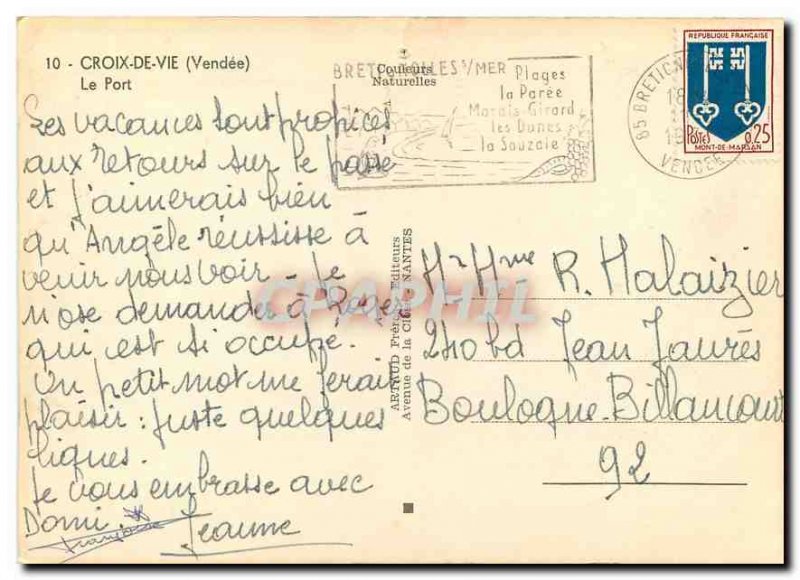 10 - CROIX-DE-VIE (Vendée)
Le Port
Les vacances sont propices
aux retours sur le passé
et j'aimerais bien
qu'Angèle réussisse à
venir nous voir - Je
n'ose demander à Roger
qui est si occupé.
Un petit mot me ferait
plaisir : juste quelques
lignes.
Je vous embrasse avec
Domi.
Françoise
Jeanne
Couleurs
Naturelles
BRETIGNOLLES S/MER
Plages
la Parée
Marais-Girard
les Dunes
la Sauzaie
85 BRETIGN
VENDEE
REPUBLIQUE FRANÇAISE
POSTES 0,25
MONT-DE-MARSAN
ARTAUD Frères, Editeurs
Avenue de la NANTES
CPAPHIL
Mr Mme R. Malaizier
240 bd Jean Jaurès
Boulogne-Billancourt
92